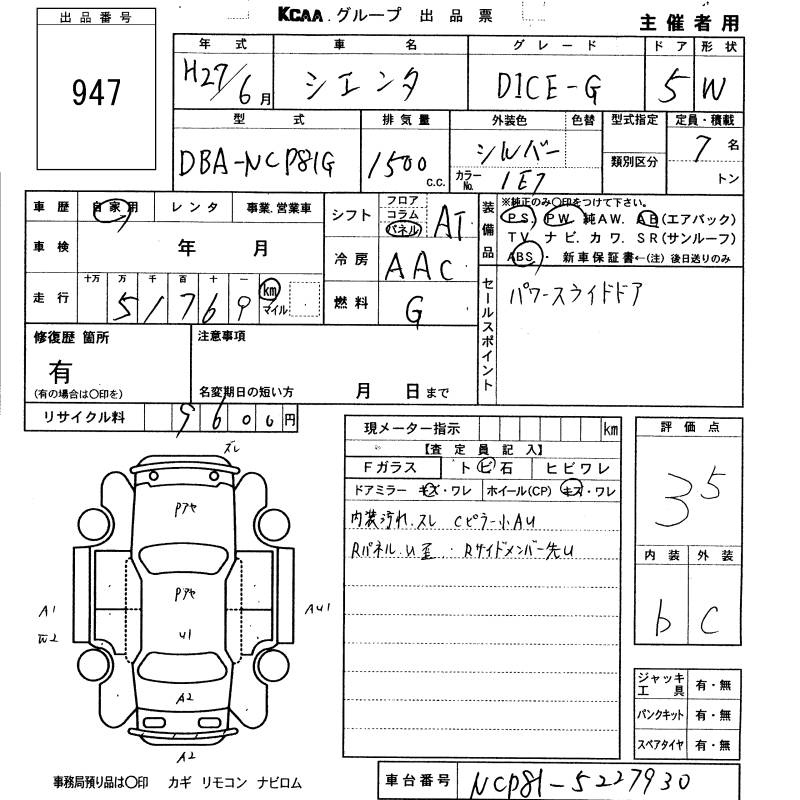 KCAA グループ 出品票
主催者用
出品番号
947
年式 車名 グレード ドア 形状
H27/6月 シエンタ DICE-G 5 W
型式 排気量 外装色 色替 型式指定 定員・積載
DBA-NCP81G 1500 c.c. シルバー 類別区分 7名
カラーNo. 1E7 トン
車歴 自家用 レンタ 事業.営業車
シフト フロア コラム パネル AT
車検 年 月
冷房 AAC
走行 十万 万 千 百 十 一 km マイル
5 1 7 6 9
燃料 G
装備品 ※純正のみ〇印をつけて下さい。
PS PW 純AW. AB(エアバック)
TV ナビ. カワ. SR(サンルーフ)
ABS・ 新車保証書←(注) 後日送りのみ
セールスポイント パワースライドドア
修復歴 箇所
有
(有の場合は〇印を)
注意事項
名変期日の短い方 月 日まで
リサイクル料 9600円
現メーター指示 km
【査定員記入】
Fガラス トビ石 ヒビワレ
ドアミラー キズ・ワレ ホイール(CP) キズ・ワレ
内装汚れ.スレ Cピラー小AU
Rパネル.U歪・Rサイドメンバー先U
評価点
35
内装 外装
b C
ジャッキ工具 有・無
パンクキット 有・無
スペアタイヤ 有・無
ズレ
Pアヤ
Pアヤ
U1
A1
W2
AU1
A2
A2
事務局預り品は〇印 カギ リモコン ナビロム
車台番号 NCP81-5227930